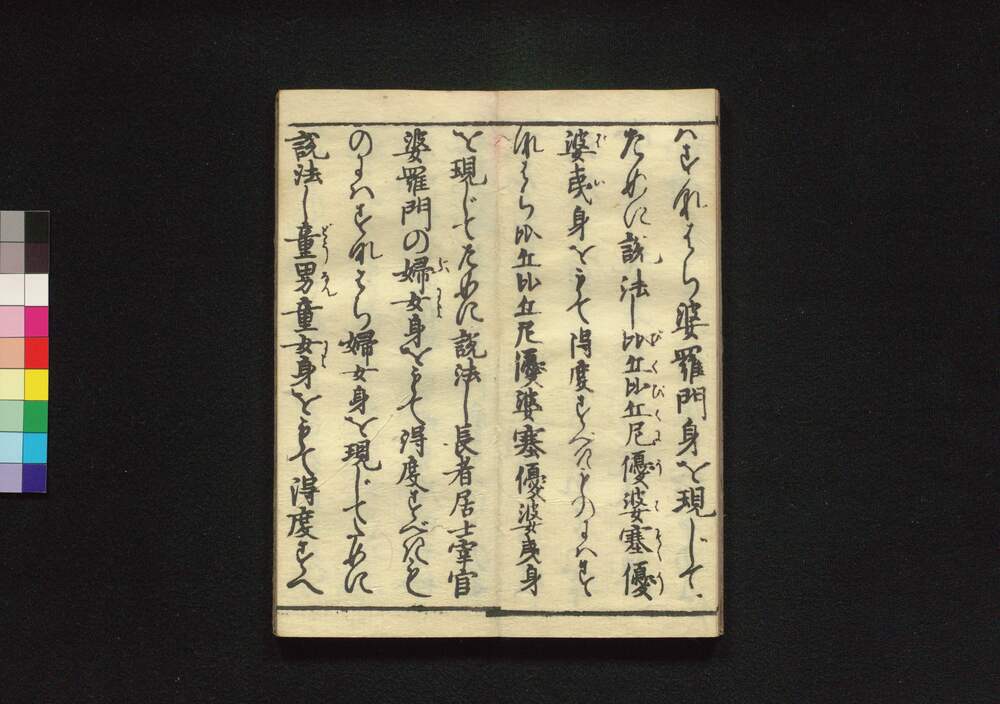 はすなはち婆羅門身を現じて
ために説法し比丘比丘尼優婆塞優
婆夷身をもて得度すべきものにはす
なはち比丘比丘尼優婆塞優婆夷身
を現じてために説法し長者居士宰官
婆羅門の婦女身をもて得度すべきも
のにはすなはち婦女身を現じてために
説法し童男童女身をもて得度すべ